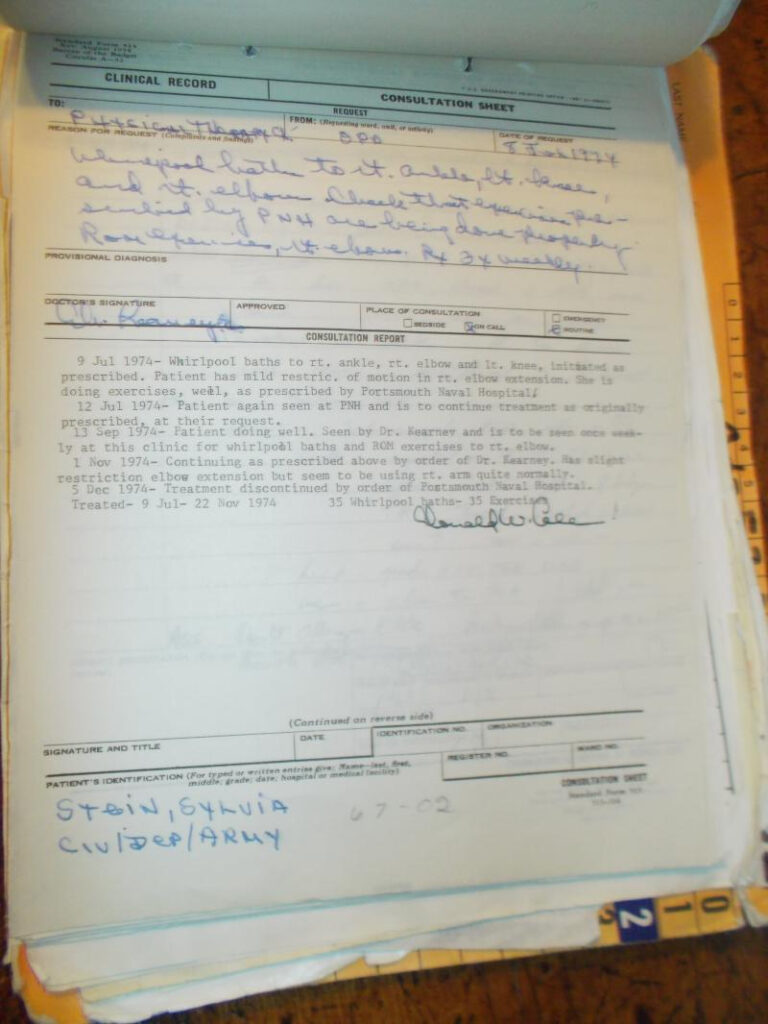 Standard Form 513
Rev. August 1954
Bureau of the Budget
Circular A-32
CLINICAL RECORD
CONSULTATION SHEET
REQUEST
TO:
Physical Therapy
FROM: (Requesting ward, unit, or activity)
OPD
DATE OF REQUEST
8 Jul 1974
REASON FOR REQUEST (Complaints and findings)
Whirlpool baths to rt. ankle, lt. knee,
and rt. elbow. Check that exercises pre-
scribed by PNH are being done properly.
Rom exercises, rt. elbow. Rx 3x weekly.
PROVISIONAL DIAGNOSIS
DOCTOR'S SIGNATURE
Kearney
APPROVED
PLACE OF CONSULTATION
BEDSIDE
ON CALL
EMERGENCY
ROUTINE
CONSULTATION REPORT
9 Jul 1974- Whirlpool baths to rt. ankle, rt. elbow and lt. knee, initiated as
prescribed. Patient has mild restric. of motion in rt. elbow extension. She is
doing exercises, well, as prescribed by Portsmouth Naval Hospital.
12 Jul 1974- Patient again seen at PNH and is to continue treatment as originally
prescribed, at their request.
13 Sep 1974- Patient doing well. Seen by Dr. Kearney and is to be seen once week-
ly at this clinic for whirlpool baths and ROM exercises to rt. elbow.
1 Nov 1974- Continuing as prescribed above by order of Dr. Kearney. Has slight
restriction elbow extension but seem to be using rt. arm quite normally.
5 Dec 1974- Treatment discontinued by order of Portsmouth Naval Hospital.
Treated- 9 Jul- 22 Nov 1974 35 Whirlpool baths- 35 Exercise
Donald W.
(Continued on reverse side)
SIGNATURE AND TITLE
DATE
IDENTIFICATION NO.
ORGANIZATION
PATIENT'S IDENTIFICATION (For typed or written entries give: Name—last, first,
middle; grade; date; hospital or medical facility)
REGISTER NO.
WARD NO.
STEIN, SYLVIA
CIV/DEP/ARMY
67-02
CONSULTATION SHEET
Standard Form 513
LAST NAME
2 1 0